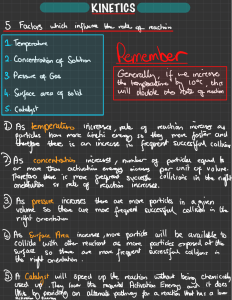 KINETICS
5 Factors which influence the rate of reaction
1. Temperature
2. Concentration of Solution
3. Pressure of Gas
4. Surface area of solid
5. Catalyst
Remember
Generally, if we increase
the temperature by 10°C this
will double the rate of reaction
① As temperature increases, rate of reaction increases as
particles have more kinetic energy so they move faster and
therefore there is an increase in frequent successful collisions
② As concentration increases, number of particles equal to
or more than activation energy increases per unit of volume.
Therefore there is more frequent successful collisions in the right
orientation so rate of reaction increases.
③ As pressure increases there are more particles in a given
volume. So there are more frequent successful collisions in the
right orientation.
④ As Surface Area increases, more particles will be available to
collide with other reactant as more particles exposed at the
surface so there are more frequent successful collisions in
the right orientation.
⑤ A Catalyst will speed up the reaction without being chemically
used up. They lower the required Activation Energy and it does
this by providing an alternate pathway for a reaction that has a low
Activation Energy